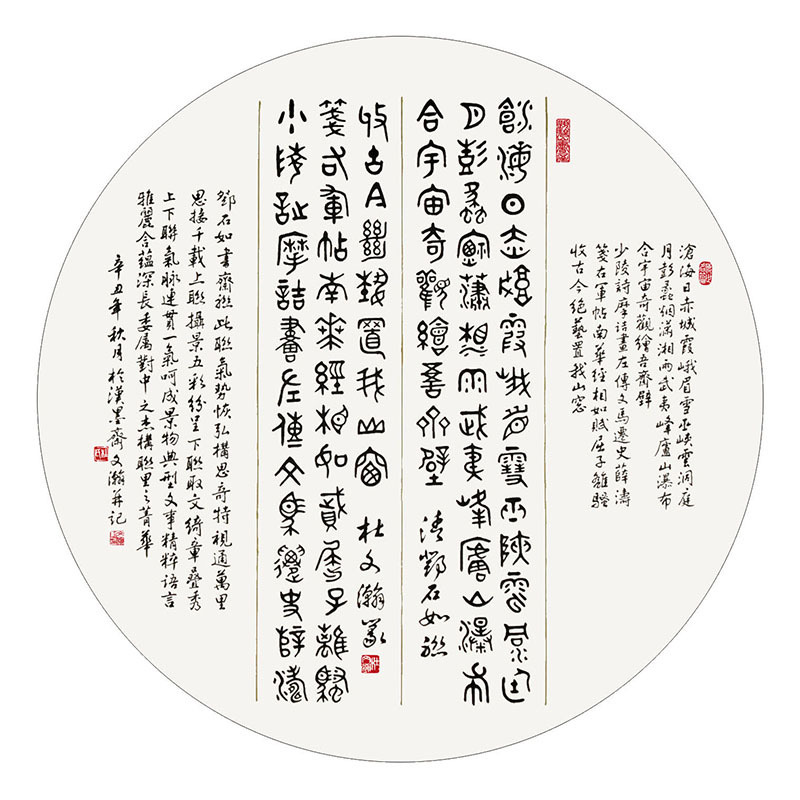 滄海日赤城霞峨眉雪巫峽雲洞庭
月彭蠡烟瀟湘雨武夷峰廬山瀑布
合宇宙奇觀繪吾齋壁
少陵詩摩詰畫左傳文馬遷史薛濤
箋右軍帖南華經相如賦屈子離騷
收古今絕藝置我山窗
滄海日赤城霞峨眉雪巫峽雲洞庭
月彭蠡烟瀟湘雨武夷峰廬山瀑布
合宇宙奇觀繪吾齋壁 清鄧石如聯
少陵詩摩詰畫左傳文馬遷史薛濤
箋右軍帖南華經相如賦屈子離騷
收古今絕藝置我山窗 杜文瀚篆
鄧石如書齋聯此聯氣勢恢弘構思奇特視通萬里
思接千載上聯攝景五彩紛呈下聯取文綺章疊秀
上下聯氣脉連貫一氣呵成景物典型文事精粹語言
雅麗含蘊深長委屬對中之杰構聯里之菁華
辛丑年秋月於漢墨齋文瀚并記